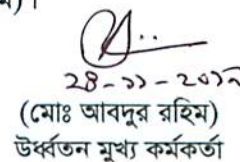 ২৪-১১-২০১২
(মোঃ আবদুর রহিম)
উর্ধ্বতন মুখ্য কর্মকর্তা